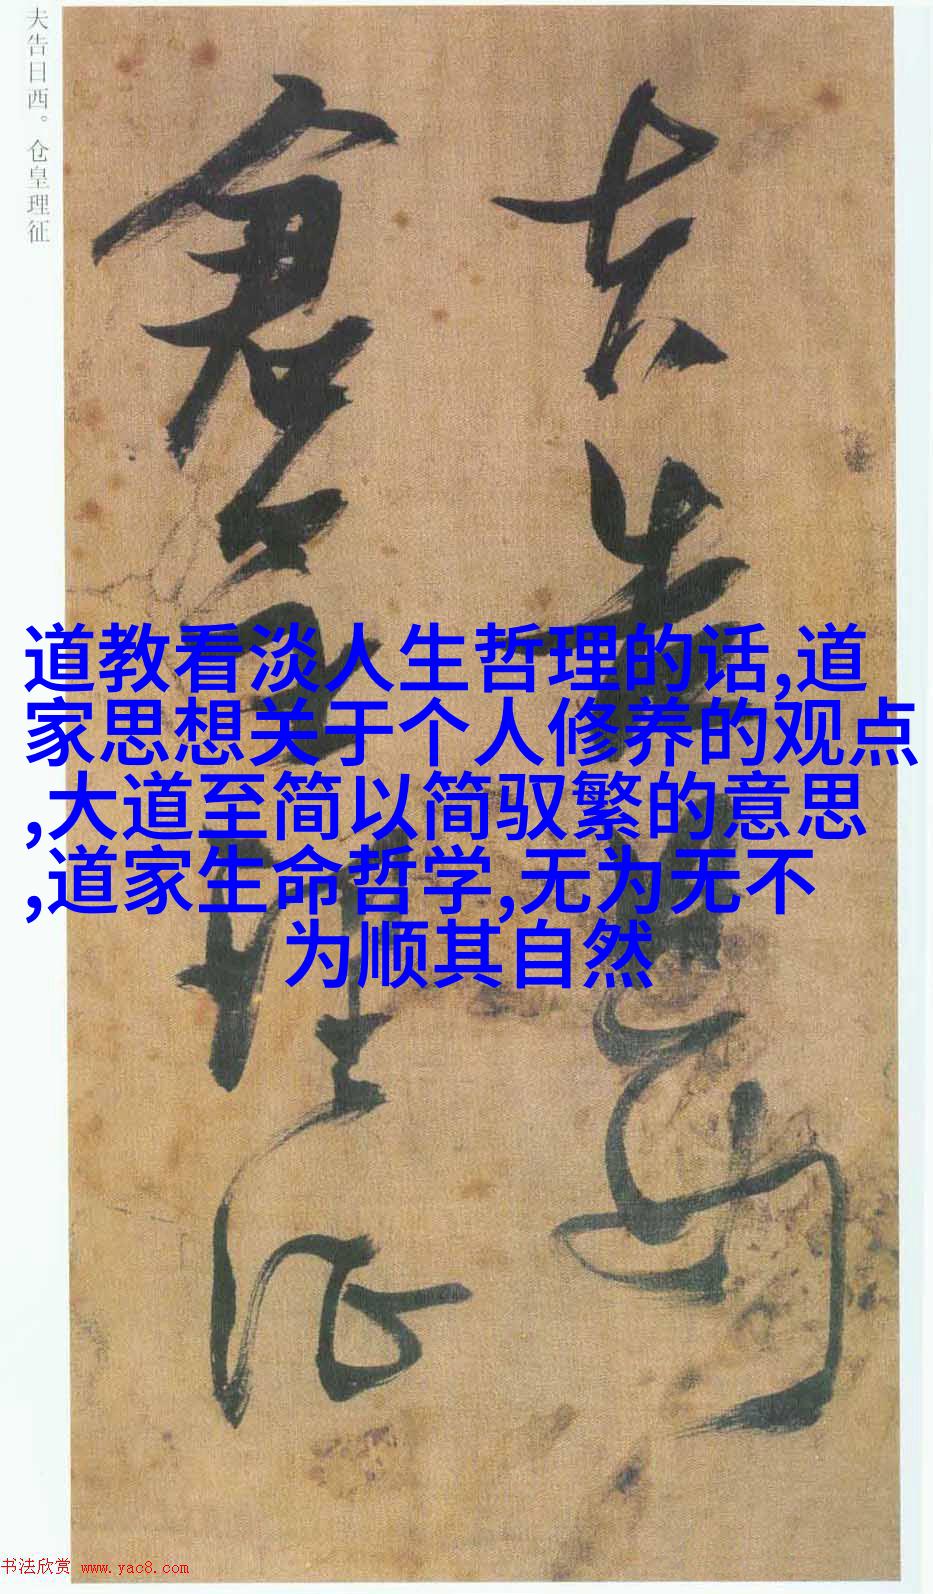 夫告日西。仓皇理征
夫告日西
仓皇理征
道教看淡人生哲理的话,道
家思想关于个人修养的观点
,大道至简以简驭繁的意思
,道家生命哲学,无为无不
为顺其自然
书法欣赏 www.yac8.com